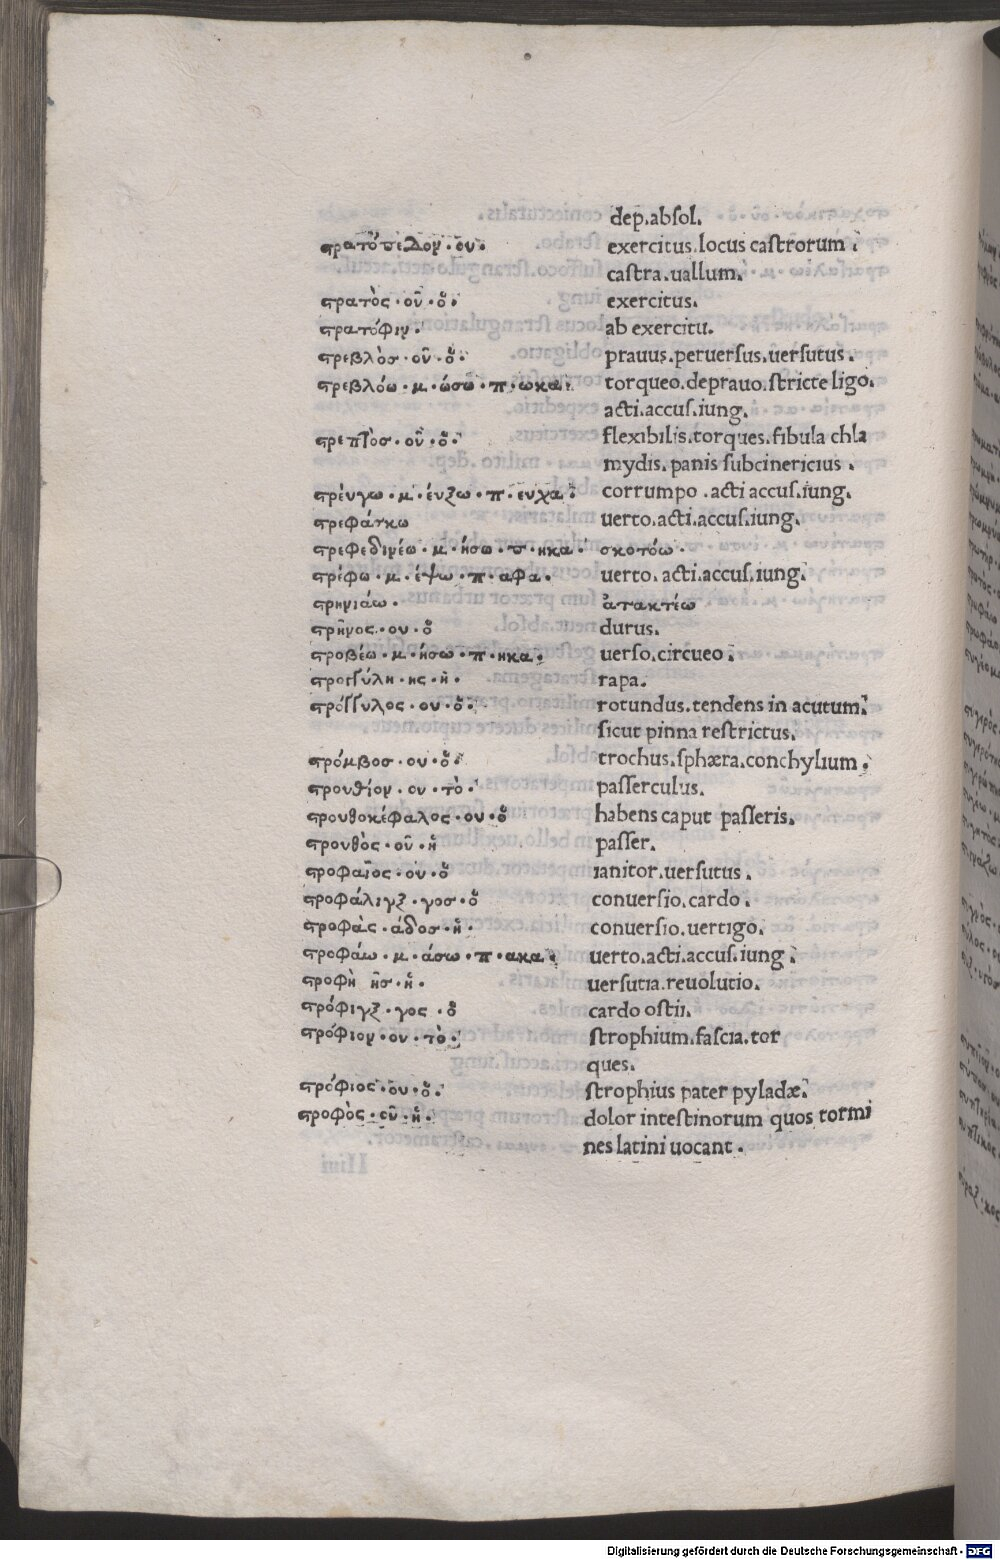 dep.absol.
στρατόπεδον·ου· exercitus.locus castrorum.
castra.uallum.
στρατὸς·οῦ·ὁ· exercitus.
στρατόφιν· ab exercitu.
στρεβλὸσ·οῦ·ὁ· prauus.peruersus.uersutus.
στρεβλόω·μ·ώσω·π·ωκα· torqueo.deprauo.stricte ligo.
acti.accus.iung.
στρεπτὸσ·οῦ·ὁ· flexibilis.torques.fibula chla
mydis.panis subcinericius.
στρέυγω·μ·έυξω·π·ευχα· corrumpo.acti accus.iung.
στρεφάσκω uerto.acti.accus.iung.
στρεφεδινέω·μ·ήσω·π·ηκα· σκοτόω·
στρέφω·μ·έψω·π·αφα· uerto.acti.accus.iung.
στρηνιάω· ἀτακτέω
στρῆνος·ου·ὁ durus.
στροβέω·μ·ήσω·π·ηκα· uerso.circueo.
στρογγύλη·ης·ἡ· rapa.
στρόγγυλος·ου·ὁ· rotundus.tendens in acutum.
sicut pinna restrictus.
στρόμβοσ·ου·ὁ· trochus.sphæra.conchylium.
στρουθίον·ου·τὸ· passerculus.
στρουθοκέφαλος·ου·ὁ habens caput passeris.
στρουθὸς·οῦ·ἡ passer.
στροφαῖος·ου·ὁ ianitor.uersutus.
στροφάλιγξ·γοσ·ὁ conuersio.cardo.
στροφὰς·άδοσ·ἡ· conuersio.uertigo.
στροφάω·μ·άσω·π·ακα· uerto.acti.accus.iung.
στροφὴ ῆσ·ἡ· uersutia.reuolutio.
στρόφιγξ·γος·ὁ cardo ostii.
στρόφιον·ου·τὸ· strophium.fascia.tor
ques.
στρόφιος·ου·ὁ· strophius pater pyladæ.
στροφὸς·οῦ·ἡ· dolor intestinorum quos tormi
nes latini uocant.
Digitalisierung gefördert durch die Deutsche Forschungsgemeinschaft - DFG